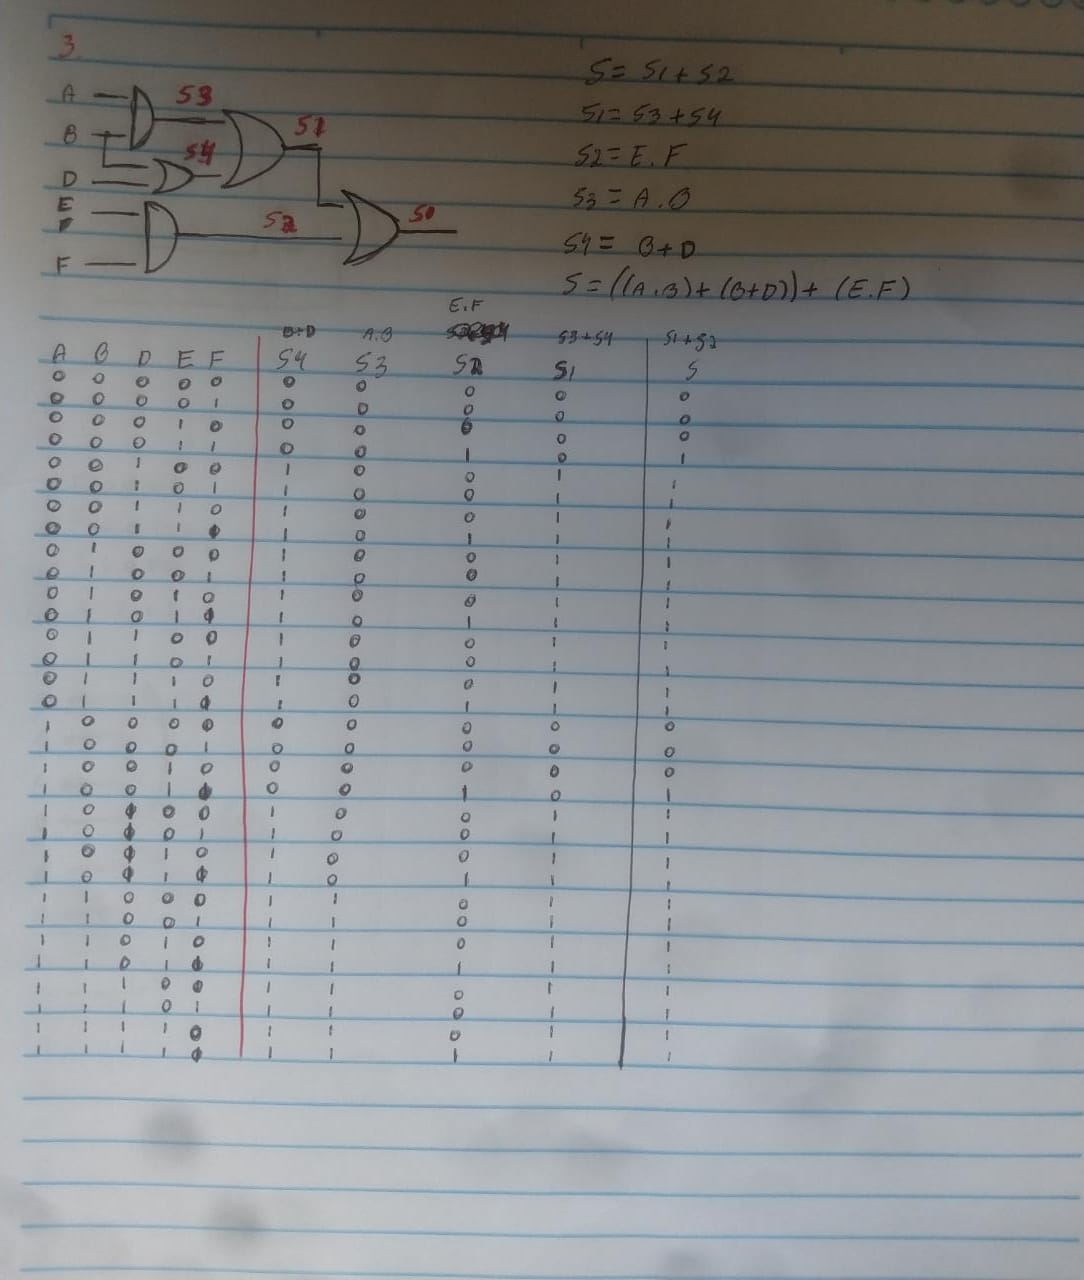 3
A S3
B S1
S4
D
E S2 S0
F
S = S1 + S2
S1 = S3 + S4
S2 = E.F
S3 = A.B
S4 = B+D
S = ((A.B) + (B+D)) + (E.F)
E.F
B+D A.B S3+S4 S1+S2
A B D E F S4 S3 S2 S1 S
0 0 0 0 0 0 0 0 0 0
0 0 0 0 1 0 0 0 0 0
0 0 0 1 0 0 0 0 0 0
0 0 0 1 1 0 0 1 0 1
0 0 1 0 0 1 0 0 1 1
0 0 1 0 1 1 0 0 1 1
0 0 1 1 0 1 0 0 1 1
0 0 1 1 1 1 0 1 1 1
0 1 0 0 0 1 0 0 1 1
0 1 0 0 1 1 0 0 1 1
0 1 0 1 0 1 0 0 1 1
0 1 0 1 1 1 0 1 1 1
0 1 1 0 0 1 0 0 1 1
0 1 1 0 1 1 0 0 1 1
0 1 1 1 0 1 0 0 1 1
0 1 1 1 1 1 0 1 1 1
1 0 0 0 0 0 0 0 0 0
1 0 0 0 1 0 0 0 0 0
1 0 0 1 0 0 0 0 0 0
1 0 0 1 1 0 0 1 0 1
1 0 1 0 0 1 0 0 1 1
1 0 1 0 1 1 0 0 1 1
1 0 1 1 0 1 0 0 1 1
1 0 1 1 1 1 0 1 1 1
1 1 0 0 0 1 1 0 1 1
1 1 0 0 1 1 1 0 1 1
1 1 0 1 0 1 1 0 1 1
1 1 0 1 1 1 1 1 1 1
1 1 1 0 0 1 1 0 1 1
1 1 1 0 1 1 1 0 1 1
1 1 1 1 0 1 1 0 1 1
1 1 1 1 1 1 1 1 1 1